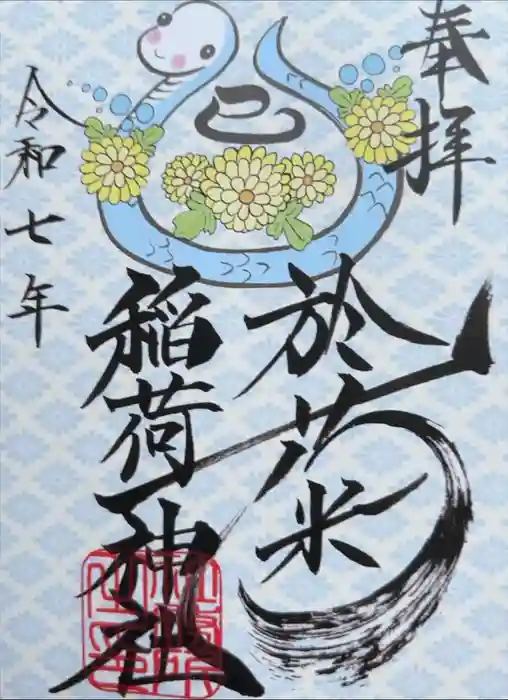 奉拝
巳
於菊稲荷神社
令和七年